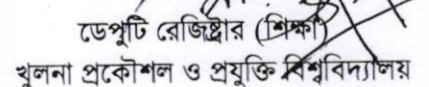 ডেপুটি রেজিষ্ট্রার (শিক্ষা)
খুলনা প্রকৌশল ও প্রযুক্তি বিশ্ববিদ্যালয়